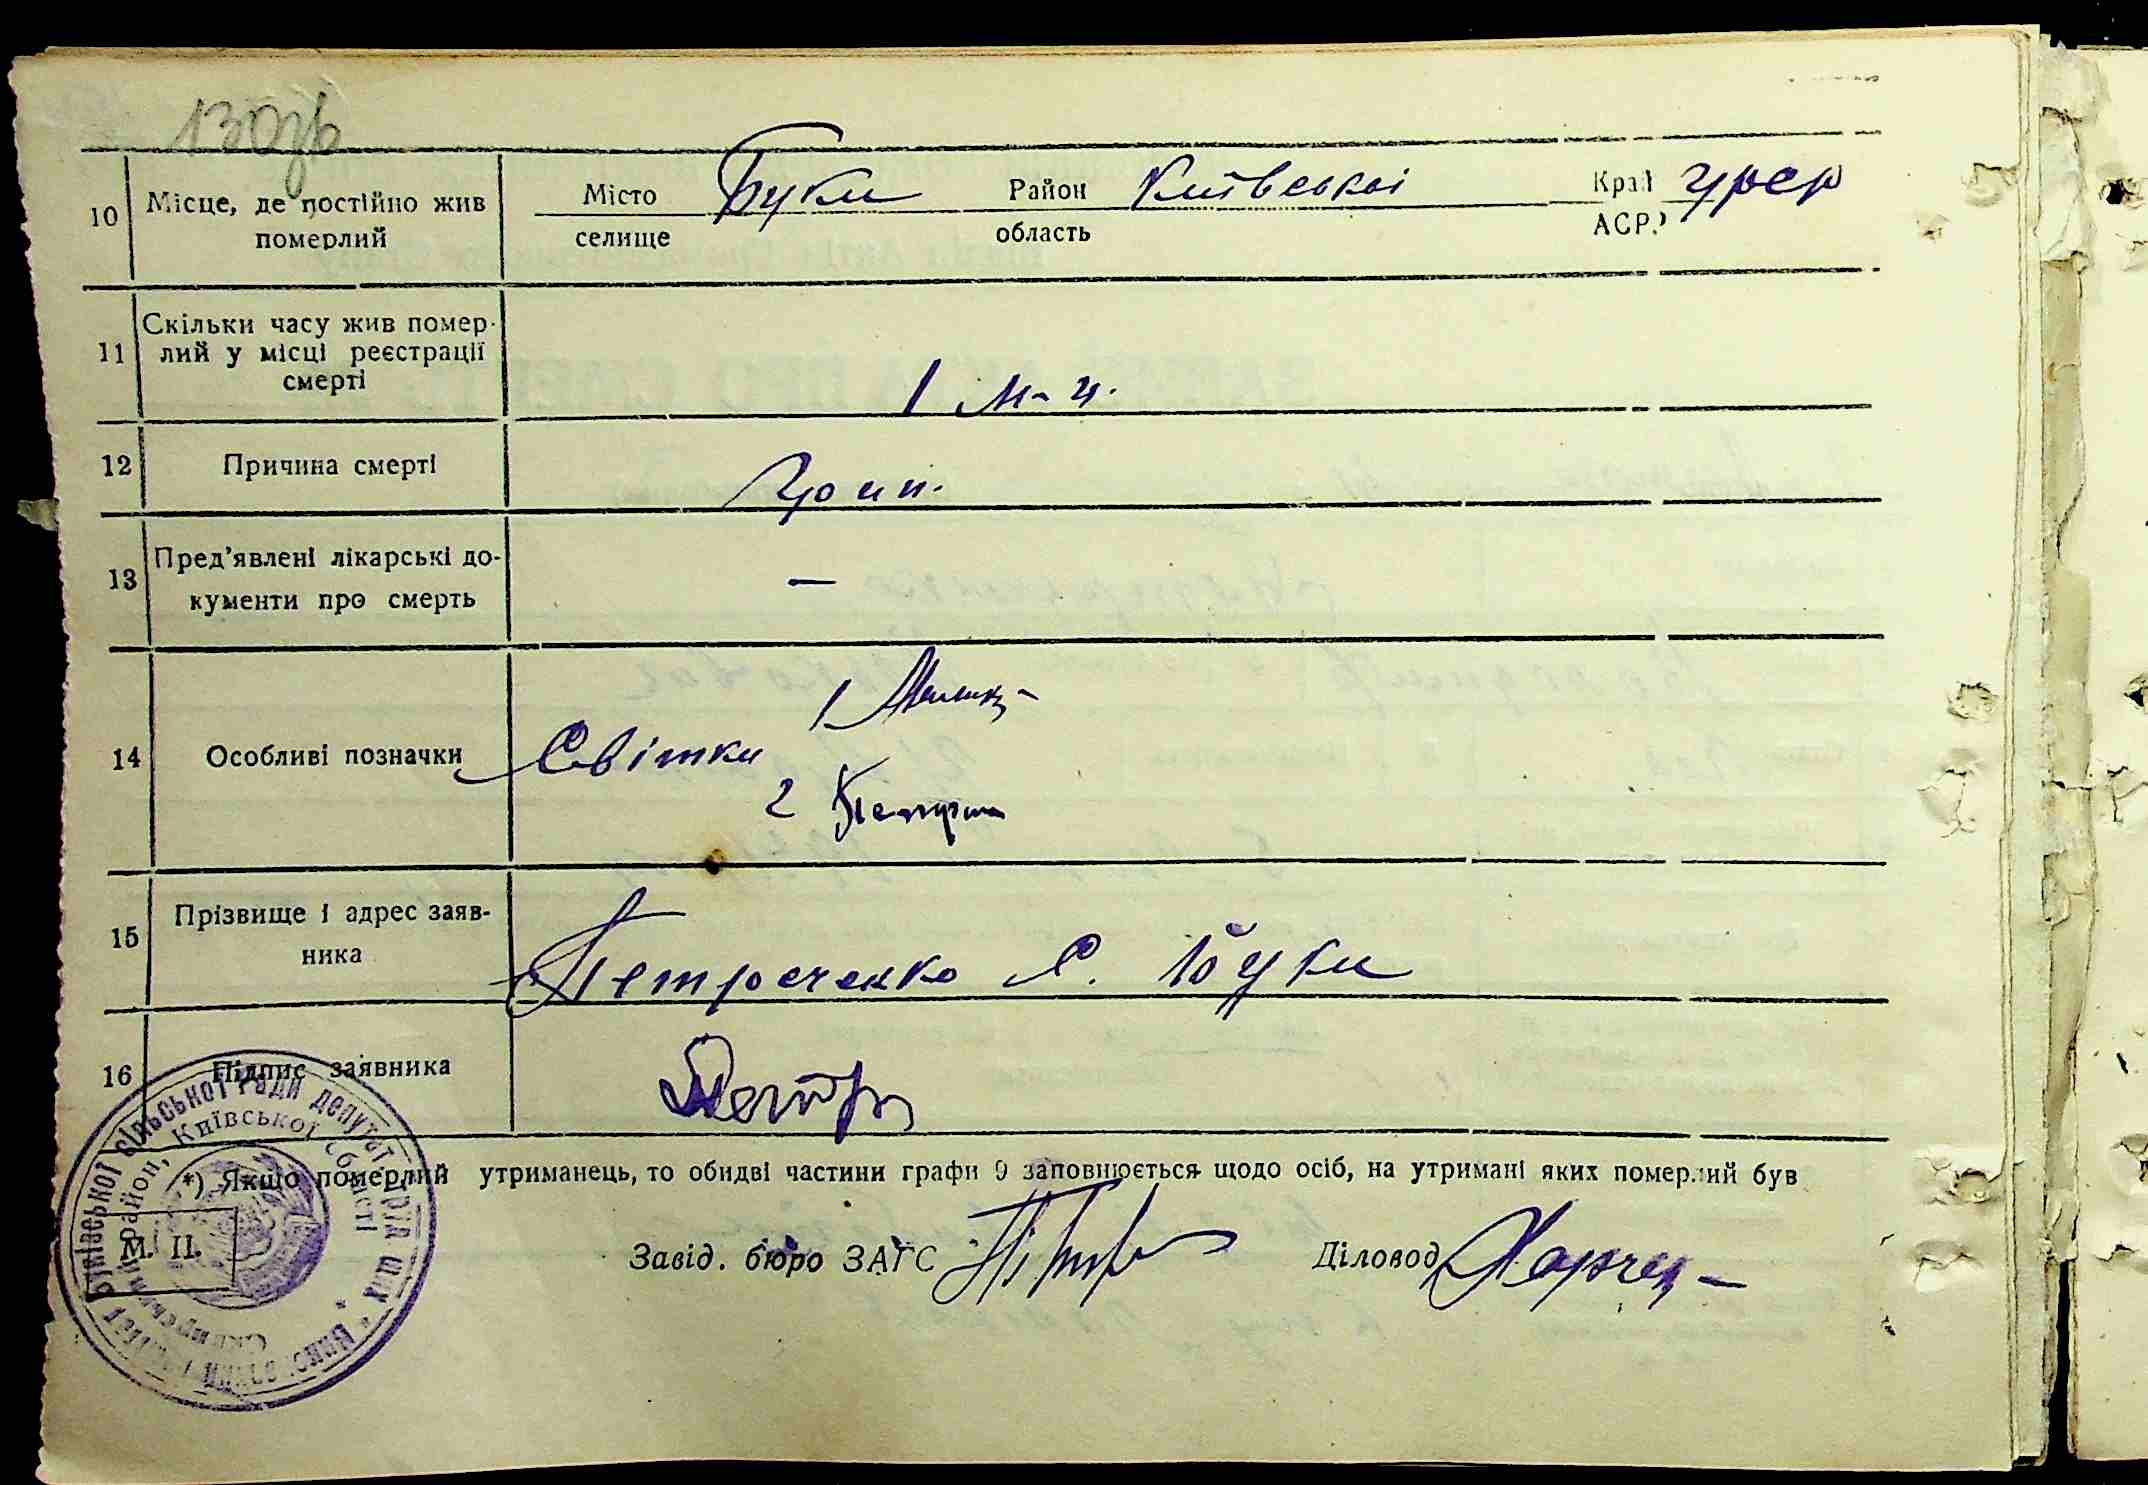 130зв
10 Місце, де постійно жив померлий Місто селище Буки Район область Київської Край АСРР УРСР
11 Скільки часу жив померлий у місці реєстрації смерті 1 м-ц.
12 Причина смерті
13 Пред'явлені лікарські документи про смерть —
14 Особливі позначки Свідки 1
2
15 Прізвище і адрес заявника Петреченко С. Буки
16 Підпис заявника Петр
*) Якщо померлий утриманець, то обидві частини графи 9 заповнюється щодо осіб, на утримані яких померлий був
М. П. Завід. бюро ЗАГС Діловод